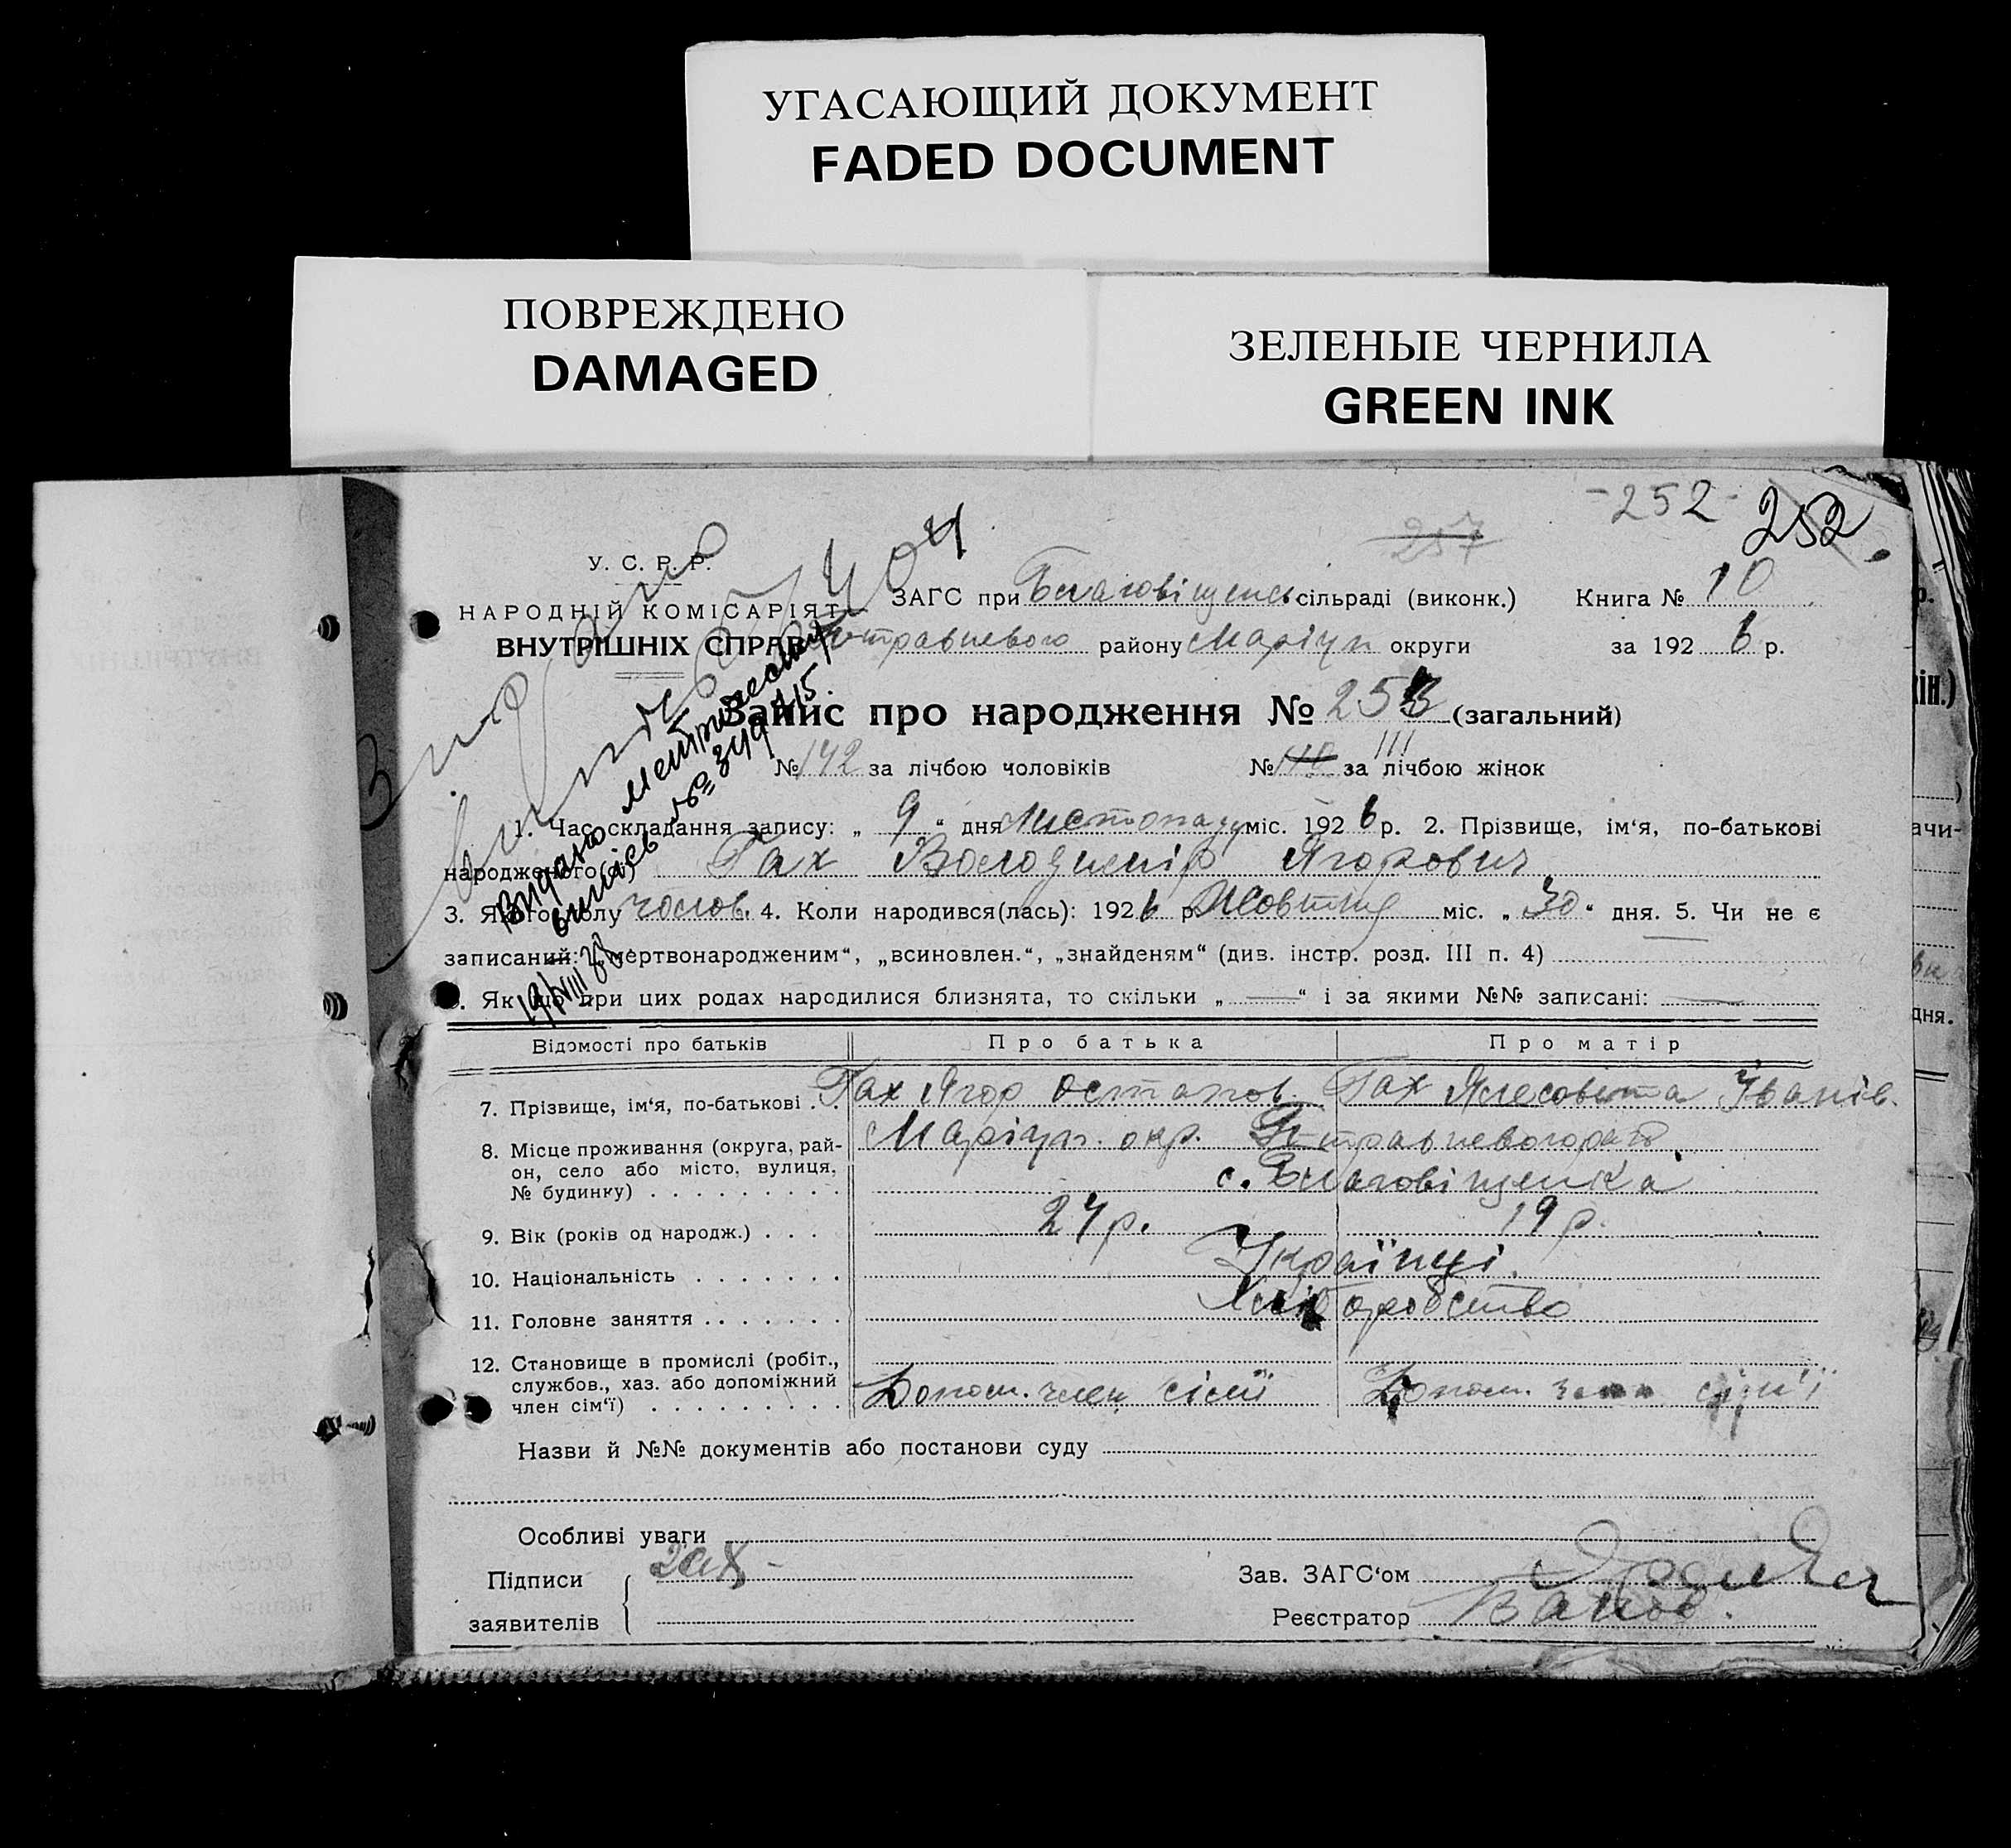 УГАСАЮЩИЙ ДОКУМЕНТ
FADED DOCUMENT
ПОВРЕЖДЕНО
DAMAGED
ЗЕЛЕНЫЕ ЧЕРНИЛА
GREEN INK
-252- 252
257
У. С. Р. Р.
НАРОДНІЙ КОМІСАРІЯТ
ВНУТРІШНІХ СПРАВ
ЗАГС при Благовіщенсь сільраді (виконк.) Книга № 10
травневого району Маріуп округи за 1926 р.
Запис про народження № 253 (загальний)
№ 142 за лічбою чоловіків № 110 111 за лічбою жінок
Видано метрическ
выпись № 349415
1. Час складання запису: „ 9 “ дня Листопаду міс. 1926 р. 2. Прізвище, ім‘я, по-батькові
народженого(ої) Гах Володимір Ягорович
3. Якого полу чолов. 4. Коли народився(лась): 1926 р. Жовтня міс. „ 30 “ дня. 5. Чи не є
записаний: „мертвонародженим“, „всиновлен.“, „знайденям“ (див. інстр. розд. III п. 4)
. Як що при цих родах народилися близнята, то скільки „ — “ і за якими №№ записані: —
Відомості про батьків Про батька Про матір
7. Прізвище, ім‘я, по-батькові . . Гах Ягор Остапов. Гах Ялесовета Іванів.
8. Місце проживання (округа, рай-
он, село або місто, вулиця,
№ будинку) . . . . . . . . .
Маріуп. окр. травневого
с. Благовіщенка
9. Вік (років од народж.) . . . 24 р. 19 р.
10. Національність . . . . . . . Українці.
11. Головне заняття . . . . . . . Хліборобство
12. Становище в промислі (робіт.,
службов., хаз. або допоміжний
член сім‘ї) . . . . . . . . .
Допом. член сімї Допом. сім'ї
Назви й №№ документів або постанови суду
Особливі уваги
Підписи
заявителів
Гах -
Зав. ЗАГС‘ом
Реєстратор